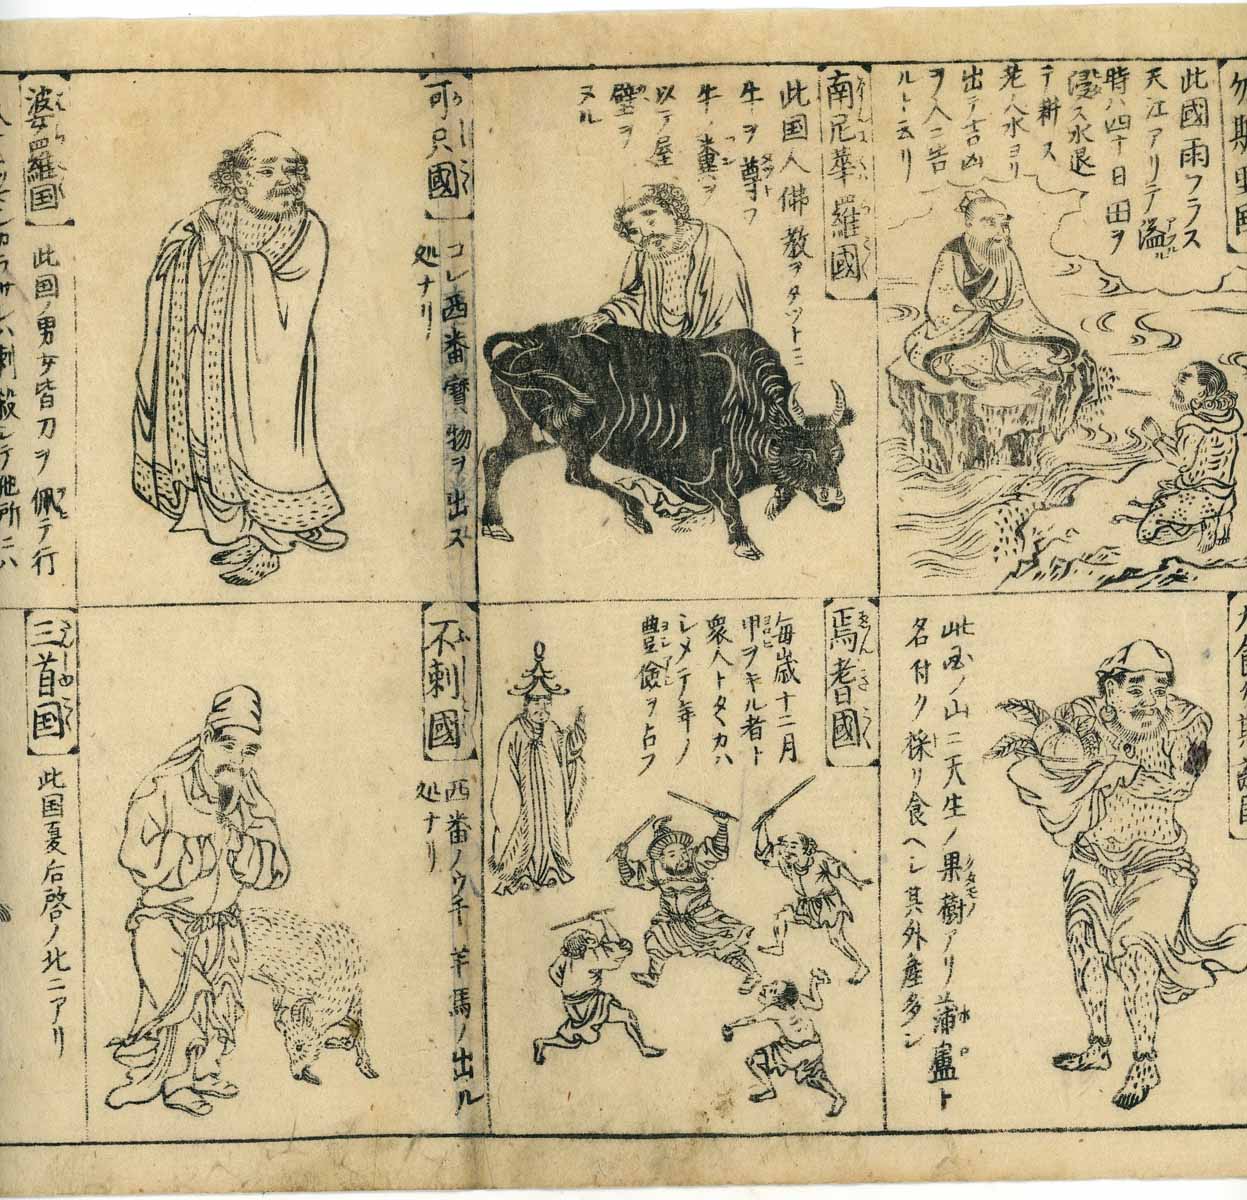 勿斯里国
此國雨フラス
天江アリテ溢ル
時ハ四十日田ヲ
浸ス水退
テ耕ス
老人水ヨリ
出テ吉凶
ヲ人ニ告
ルト云リ
南尼華羅國
此国人佛教ヲタツトミ
牛ヲ尊フ
牛ノ糞ヲ
以テ屋
壁ヲ
ヌル
可只國
コレ西番寳物ヲ出ス
処ナリ
婆羅国
此国ノ男女皆刀ヲ佩テ行
此国ノ山ニ天生ノ果樹アリ蒲盧ト
名付ク採リ食ヘシ其外
焉耆國
毎歳十二月
甲ヲキル者ト
衆人トタヽカハ
シメテ年ノ
豊儉ヲ占フ
不剌國
西番ノウチ羊馬ノ出ル
処ナリ
三首国
此国夏后啓ノ北ニアリ